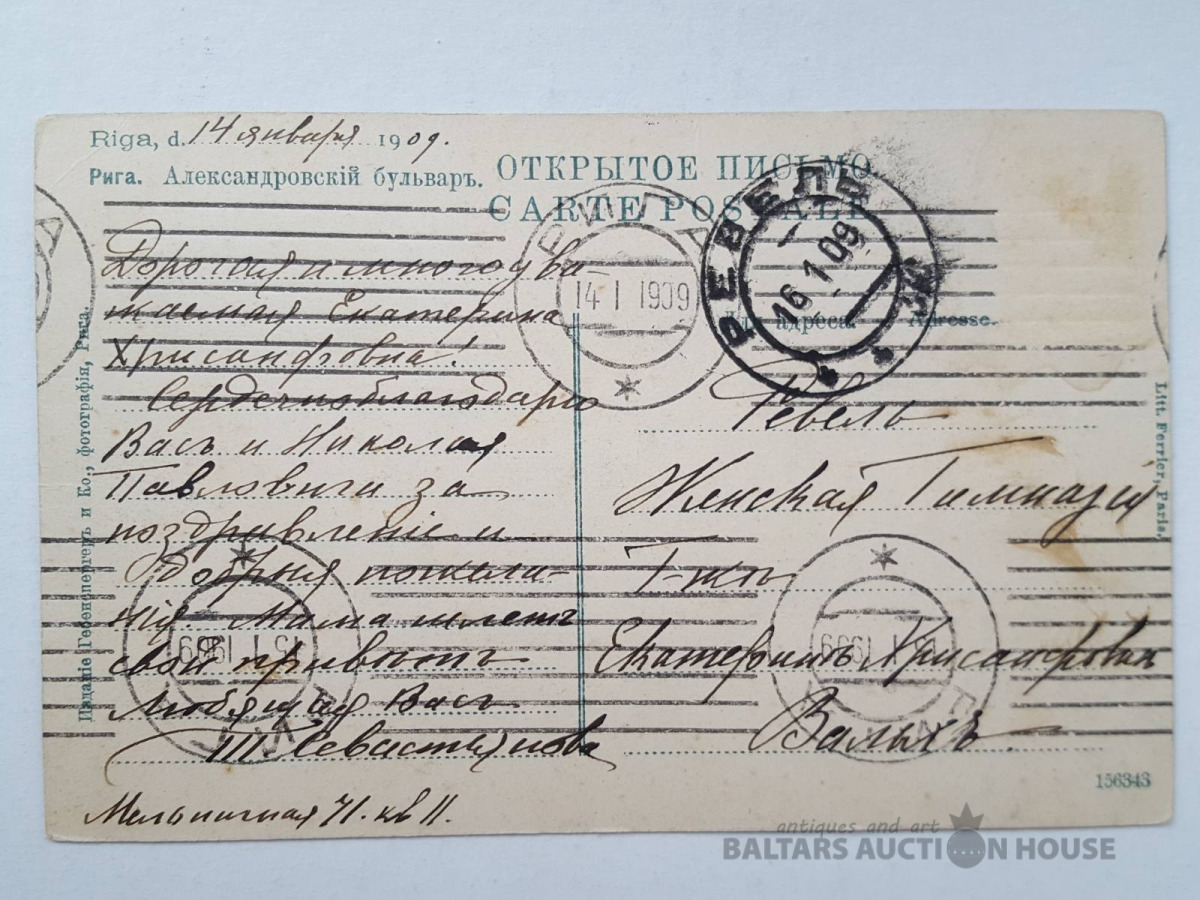 Riga, d. 14 января 1909.
Рига. Александровскій бульваръ.
ОТКРЫТОЕ ПИСЬМО
CARTE POSTALE
РИГА
14 1 1909
РЕВЕЛЬ
16 1 09
адреса. Adresse.
Дорогая и многоува-
жаемая Екатерина
Хрисанфовна!
Сердечно благодарю
Васъ и Николая
Павловича за
поздравленіе и
добрыя пожела-
нія. Мама шлетъ
свой привѣтъ
Любящая Васъ
Т Севастьянова
Мельничная 71. кв 11.
Ревель
Женская Гимназія
Г-жѣ
Екатеринѣ Хрисанфовнѣ
Вальхъ
Изданіе Гебенспергеръ и Ко., фотографія, Рига.
Litt. Ferrier, Paris.
15 1 1909
15 1 1909
156343
antiques and art
BALTARS AUCTION HOUSE